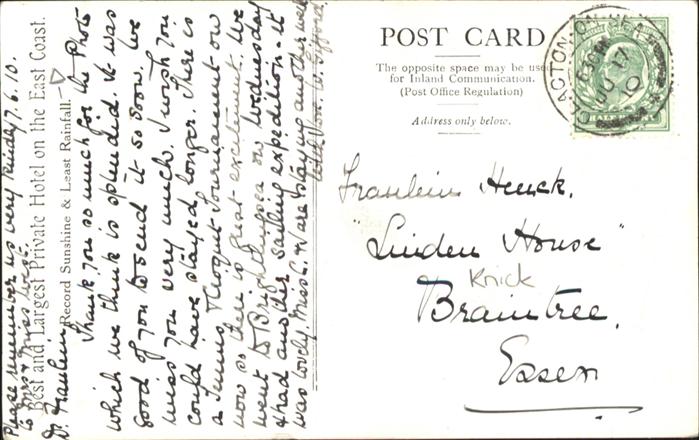 Please remember us very kindly 7.6.10.
to Mrs & Miss West.
Best and Largest Private Hotel on the East Coast.
Record Sunshine & Least Rainfall.
Dr Fraulein
Thank you so much for the Photo
which we think is splendid. It was
good of you to send it so soon. We
miss you very much. I wish you
could have stayed longer. There is
a Tennis, & Croquet Tournament on
now so there is great excitement. We
went to Brightlingsea on Wednesday
& had another sailing expedition - it
was lovely. Miss L. & M are staying another week
With love. W. Gifford.
POST CARD
The opposite space may be used
for Inland Communication.
(Post Office Regulation)
Address only below.
CLACTON-ON-SEA
JU 17
10
HALFPENNY
Fraulein Henck.
"Linden House"
Knick
Braintree.
Essex